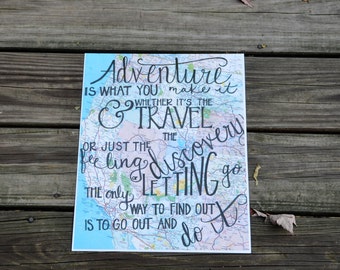 Adventure
IS WHAT YOU make it
& WHETHER IT'S THE
TRAVEL
THE
discovery
OR JUST THE
feeling
LETTING go
THE only
WAY TO FIND OUT
IS TO GO OUT AND
do it